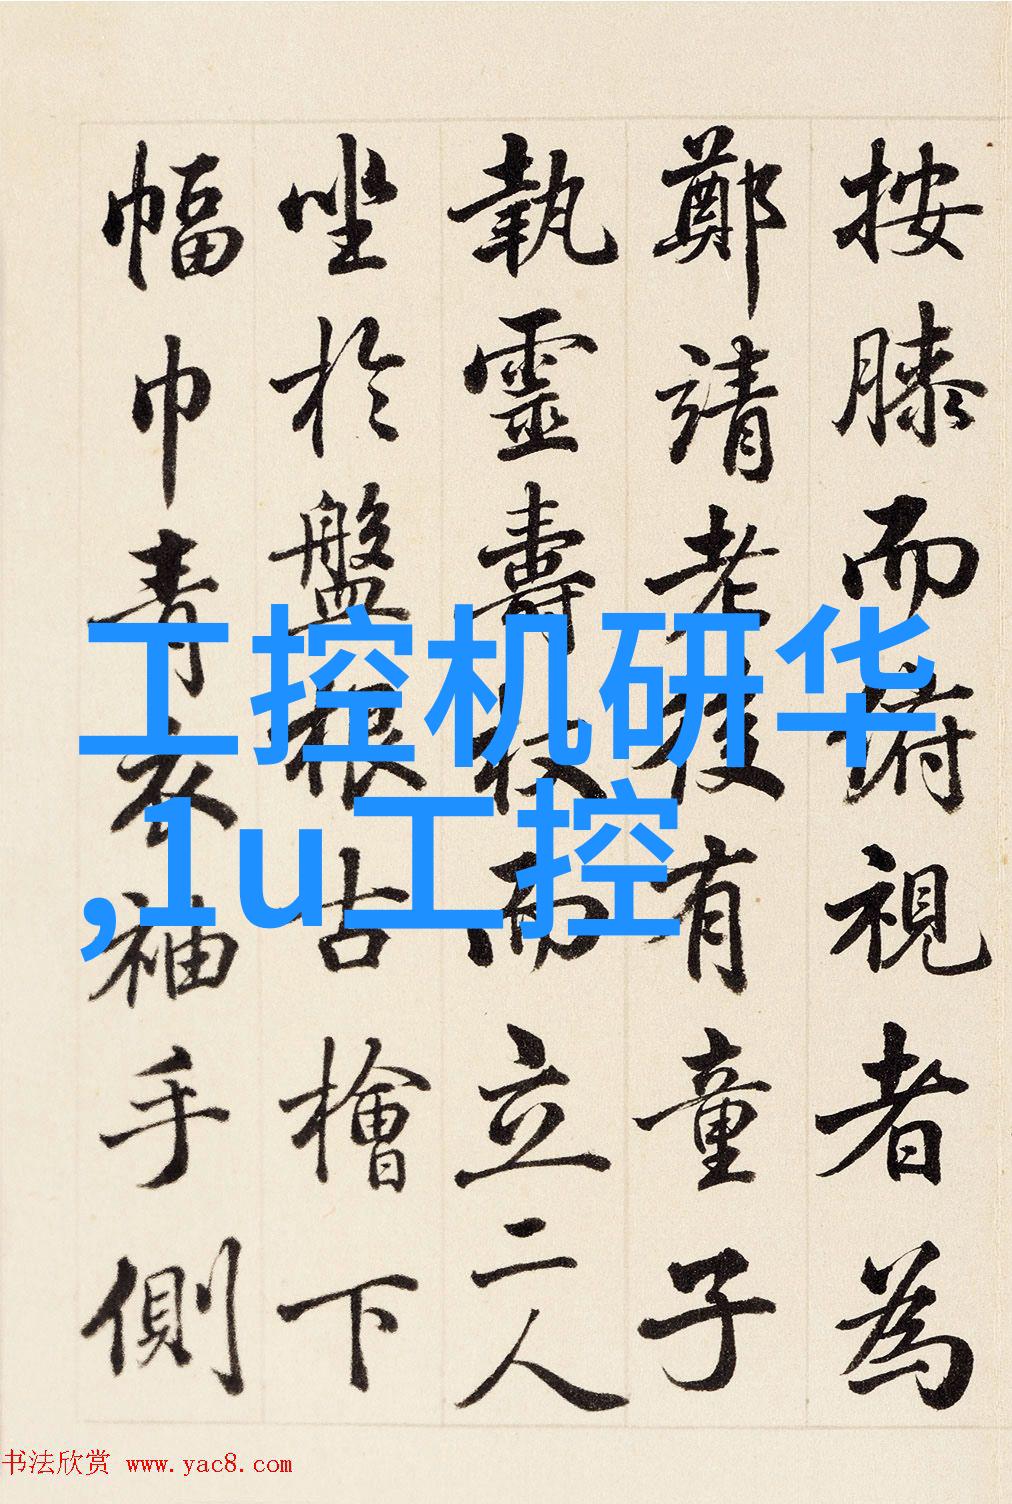 按膝而俯視者為
鄭靖老後有童子
執靈壽杖而立二人
坐於盤根古檜下
幅巾青衣袖手側
工控机研华
,1u工控
书法欣赏 www.yac8.com